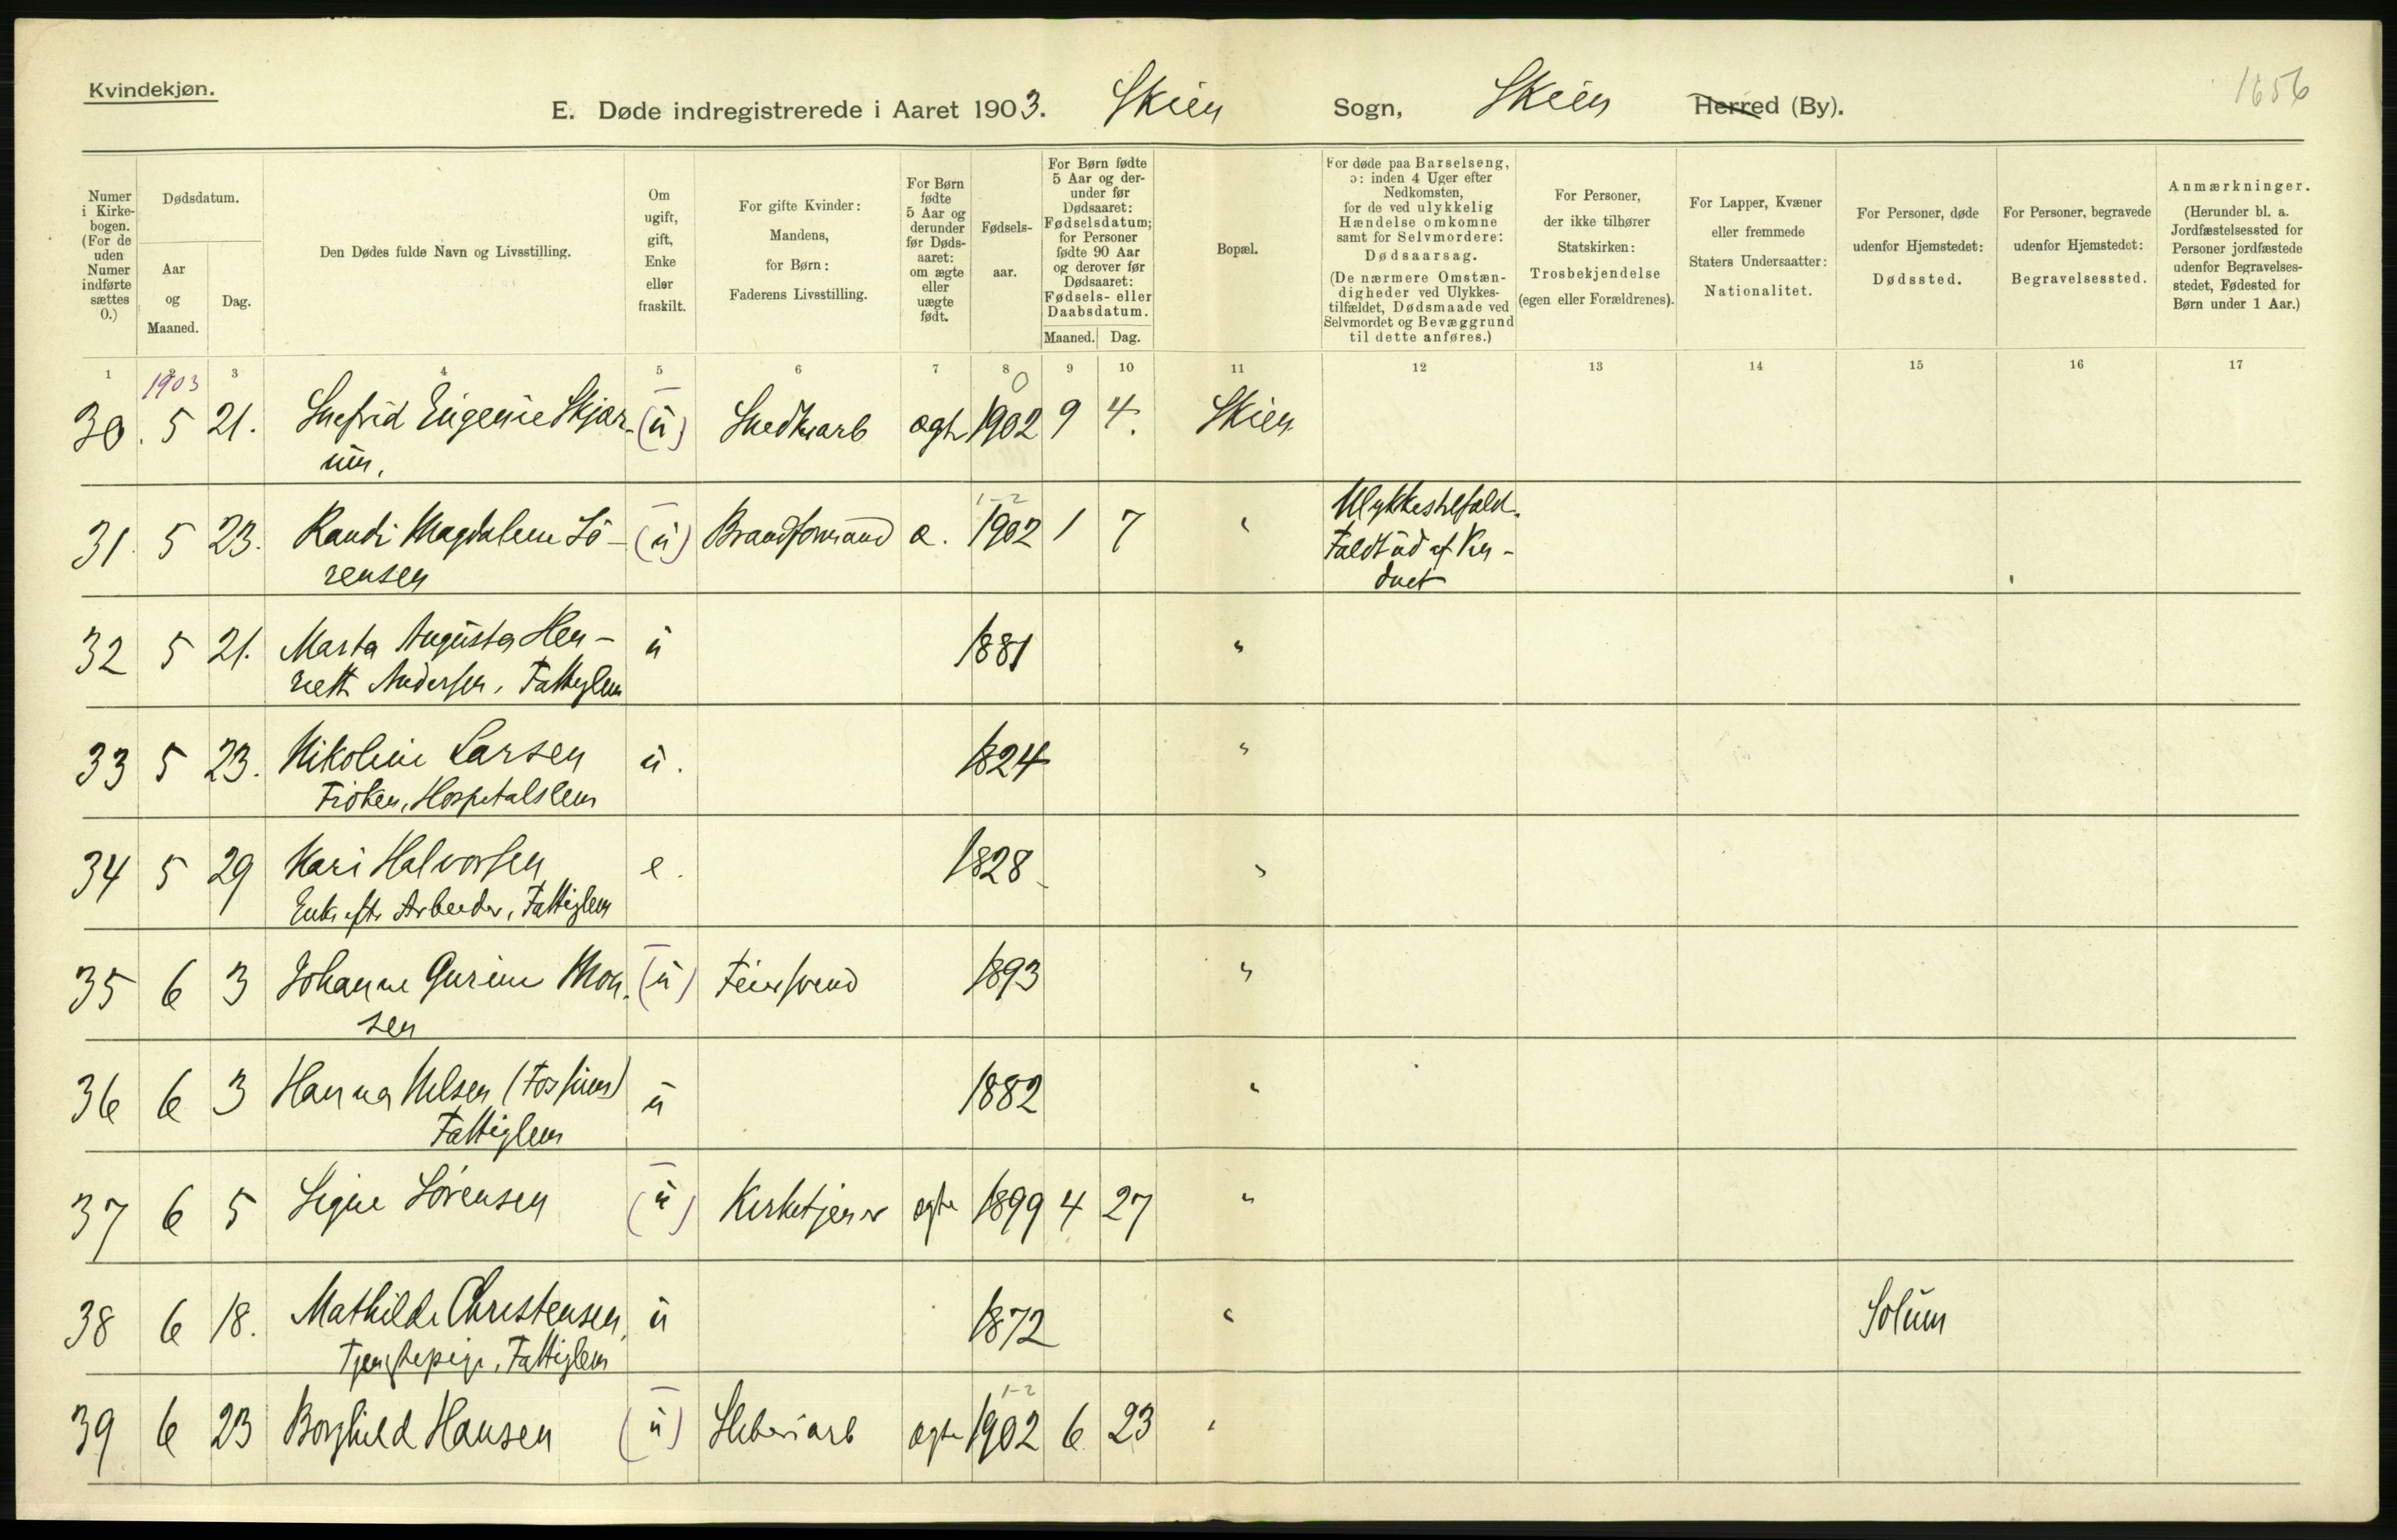 Kvindekjøn.
1656
E. Døde indregistrerede i Aaret 1903. Skien Sogn, Skien Herred (By).
Numer i Kirkebogen. (For de uden Numer indførte sættes 0.)
Dødsdatum.
Aar og Maaned.
Dag.
Den Dødes fulde Navn og Livsstilling.
Om ugift, gift, Enke eller fraskilt.
For gifte Kvinder: Mandens, for Børn: Faderens Livsstilling.
For Børn fødte 5 Aar og derunder før Dødsaaret: om ægte eller uægte født.
Fødselsaar.
For Børn fødte 5 Aar og derunder før Dødsaaret: Fødselsdatum; for Personer fødte 90 Aar og derover før Dødsaaret: Fødsels- eller Daabsdatum.
Maaned. Dag.
Bopæl.
For døde paa Barselseng, ɔ: inden 4 Uger efter Nedkomsten, for de ved ulykkelig Hændelse omkomne samt for Selvmordere: Dødsaarsag. (De nærmere Omstændigheder ved Ulykkestilfældet, Dødsmaade ved Selvmordet og Bevæggrund til dette anføres.)
For Personer, der ikke tilhører Statskirken: Trosbekjendelse (egen eller Forældrenes).
For Lapper, Kvæner eller fremmede Staters Undersaatter: Nationalitet.
For Personer, døde udenfor Hjemstedet: Dødssted.
For Personer, begravede udenfor Hjemstedet: Begravelsessted.
Anmærkninger. (Herunder bl. a. Jordfæstelsessted for Personer jordfæstede udenfor Begravelsesstedet, Fødested for Børn under 1 Aar.)
1 2 3 4 5 6 7 8 9 10 11 12 13 14 15 16 17
1903 0
30. 5 21. Snefrid Eugenie Skjar- (u) Snedkerarb ægte 1902 9 4. Skien
um.
1-2
31. 5 23. Randi Magdalene Sö- (u) Brandformand æ. 1902 1 7 "
rensen
Ulykkestilfald.
Faldt ud af Vin-
duet
32 5 21. Marta Augusta Hen- u 1881 "
riette Andersen, Fattiglem
33 5 23. Nikoline Larsen u. 1824 "
Frøken, Hospitalslem
34 5 29 Kari Halvorsen e. 1828 "
Enke eftr Arbeider, Fattiglem
35 6 3 Johanne Gurine Mon- (u) Feiersvend 1893 "
sen
36 6 3 Hanna Nilsen (Fossum) u 1882 "
Fattiglem
37 6 5 Signe Sörensen (u) Kirketjener ægte 1899 4 27 "
38 6 18. Mathilde Christensen, u 1872 " Solum
Tjenestepige, Fattiglem
1-2
39 6 23 Borghild Hansen (u) Sliberiarb ægte 1902 6 23 "